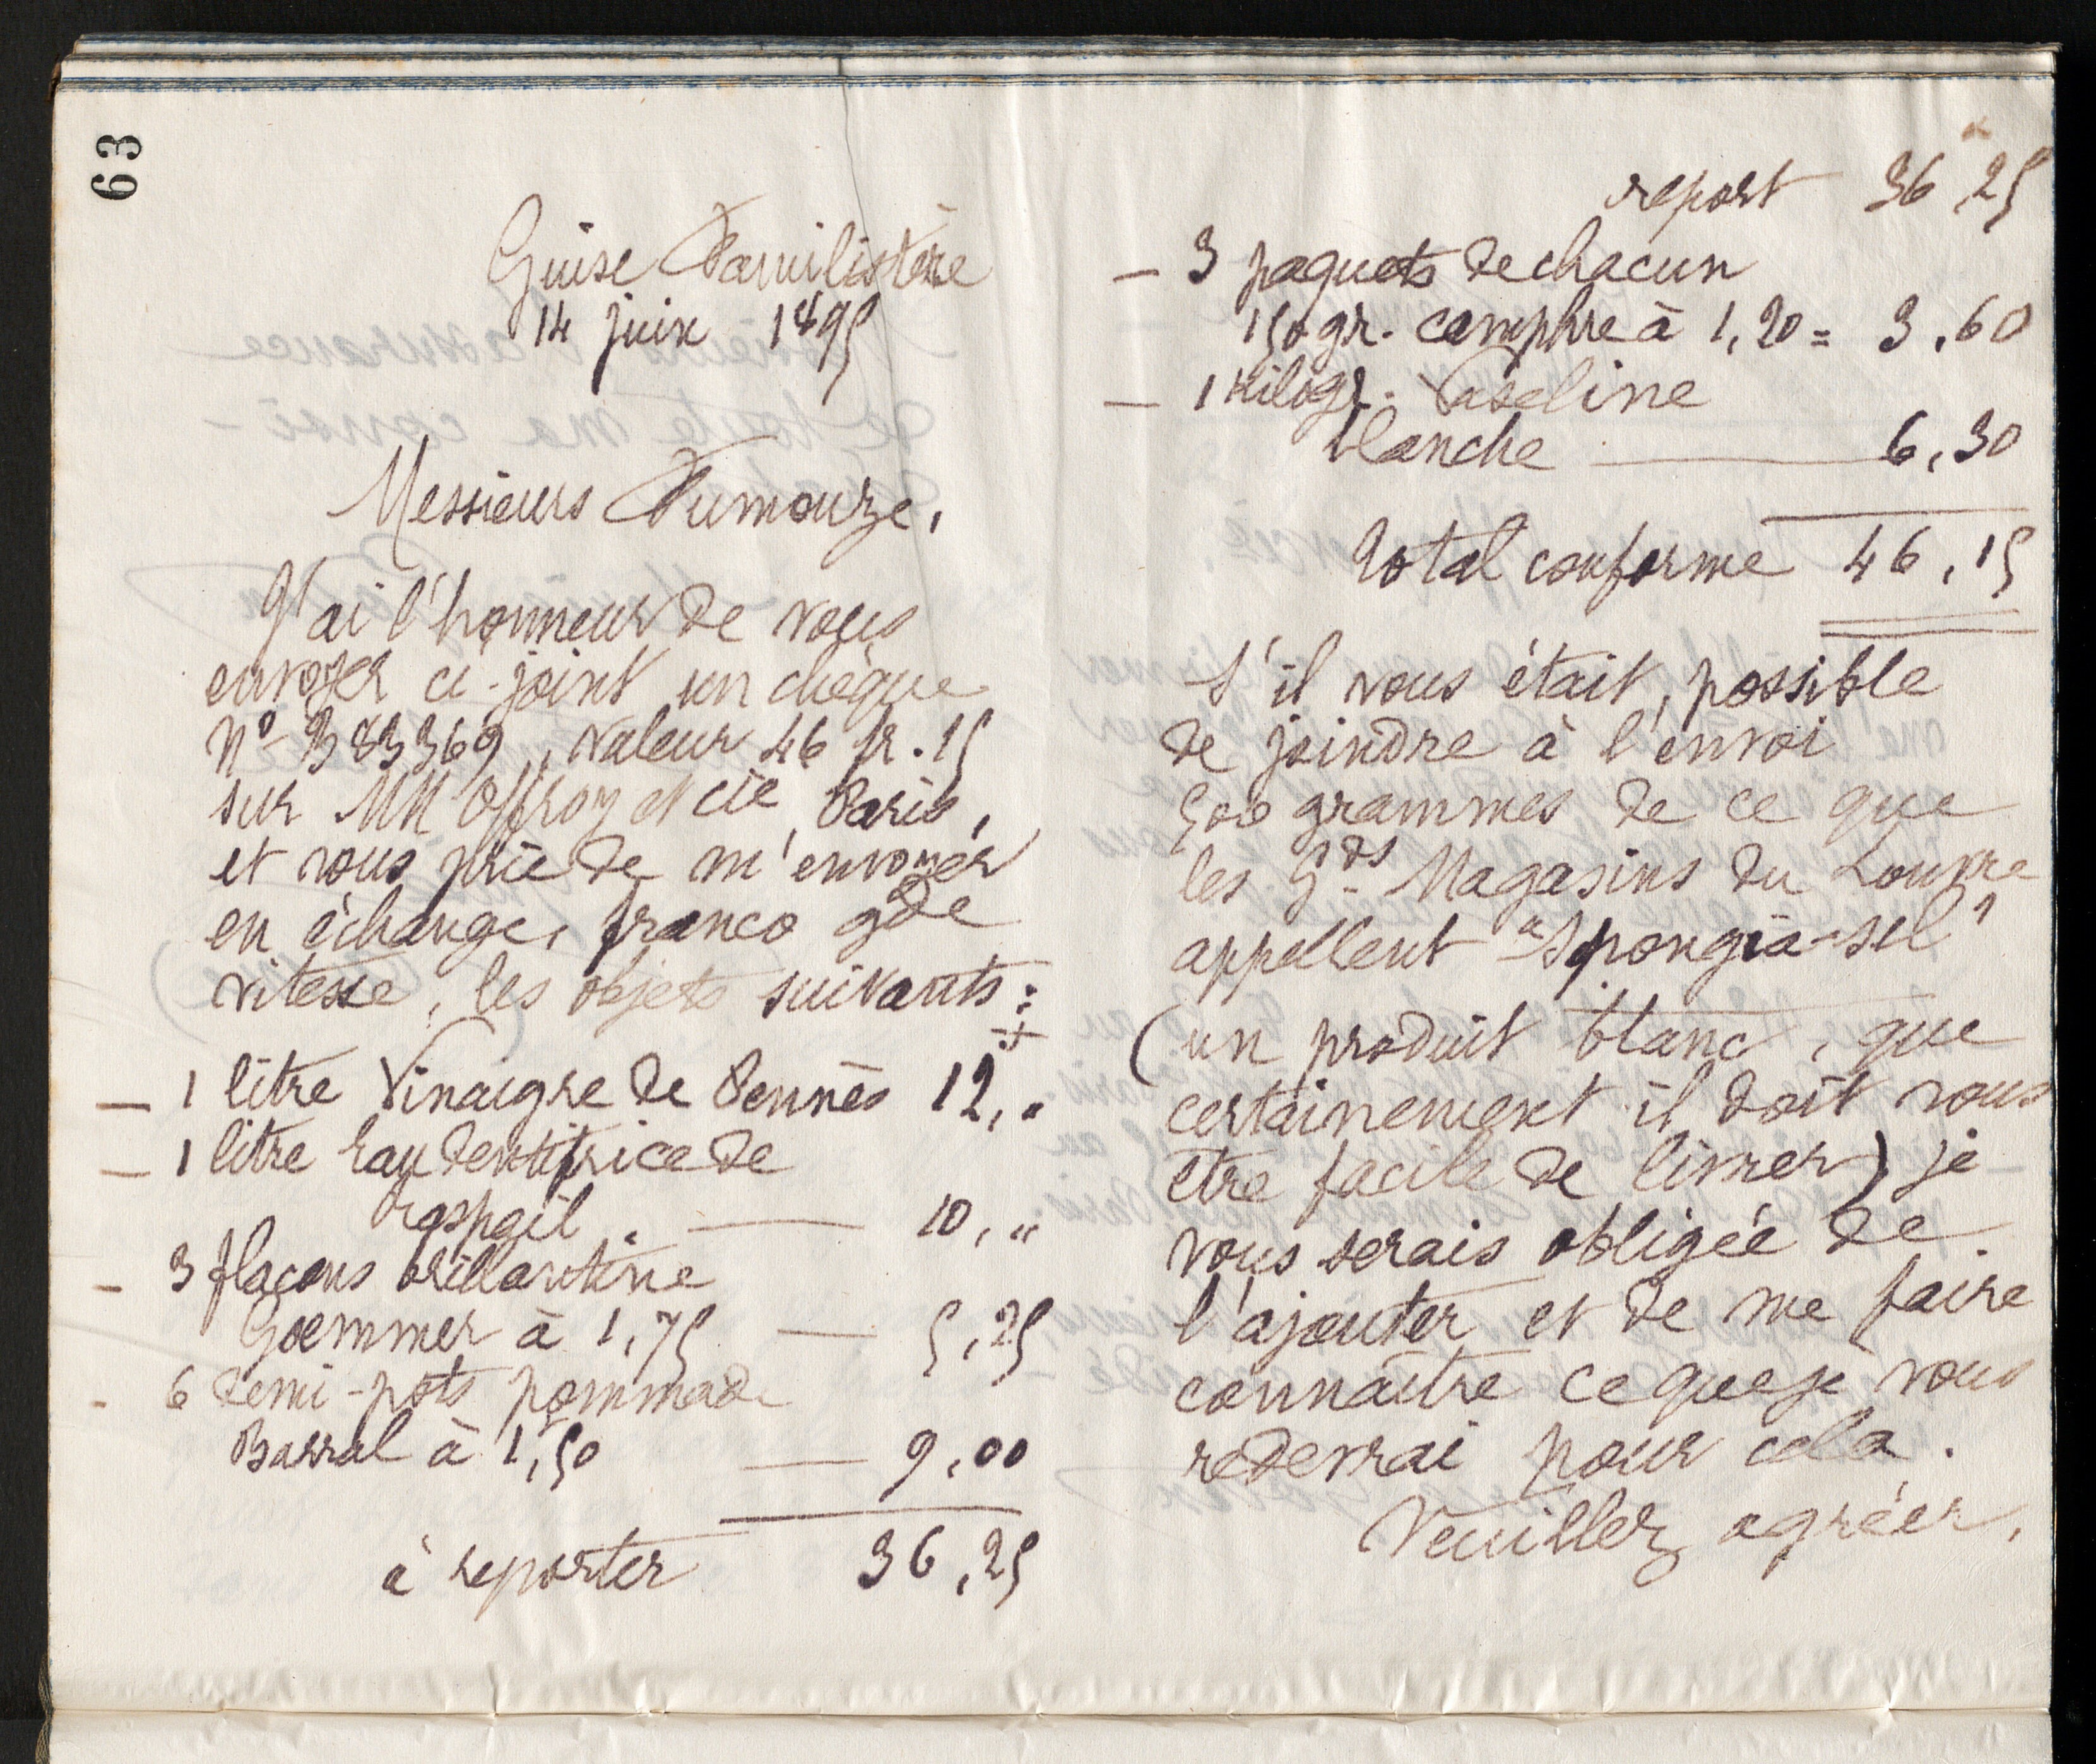 63
Guise Familistère
14 juin 1895
Messieurs Fumouze,
J'ai l'honneur de vous
envoyer ci-joint un chèque
No 383369, valeur 46 fr. 15
sur MM Offroy et cie, Paris,
et vous prie de m'envoyer
en échange, franco gde
vitesse, les objets suivants :
— 1 litre Vinaigre de Pennès 12, "
— 1 litre Eau dentifrice de
Raspail. — 10, "
— 3 flacons brillantine
Goemmer à 1,75 — 5,25
- 6 demi-pots pommade
Barral à 1,50 — 9,00
à reporter 36,25
report 36,25
— 3 paquets de chacun
150 gr. camphre à 1,20 = 3,60
— 1 Kilogr. Vaseline
blanche — 6,30
Total conforme 46,15
S'il vous était, possible
de joindre à l'envoi
500 grammes de ce que
les Gds Magasins du Louvre
appellent "Spongia-sel"
(un produit blanc, que
certainement il doit vous
être facile de livrer) je
vous serais obligée de
l'ajouter et de me faire
connaître ce que je vous
redevrai pour cela.
Veuillez agréer,